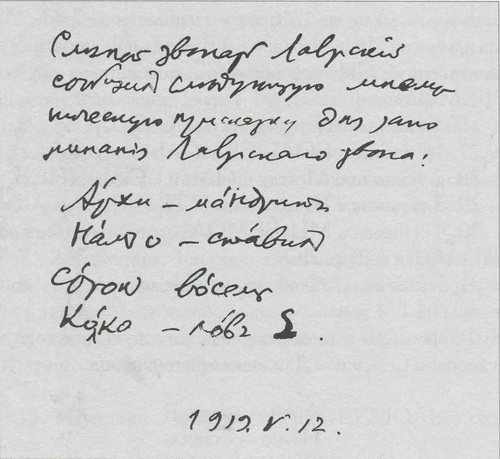 звонарь Лаврскій
сообщил следующую мнемо
ническую присказку для запо
минанія Лаврскаго звона:
А́рхи – ма́ндритъ
ста́витъ
Со́рок во́семь
Ка́ко – ло́въ
1919.V.12.